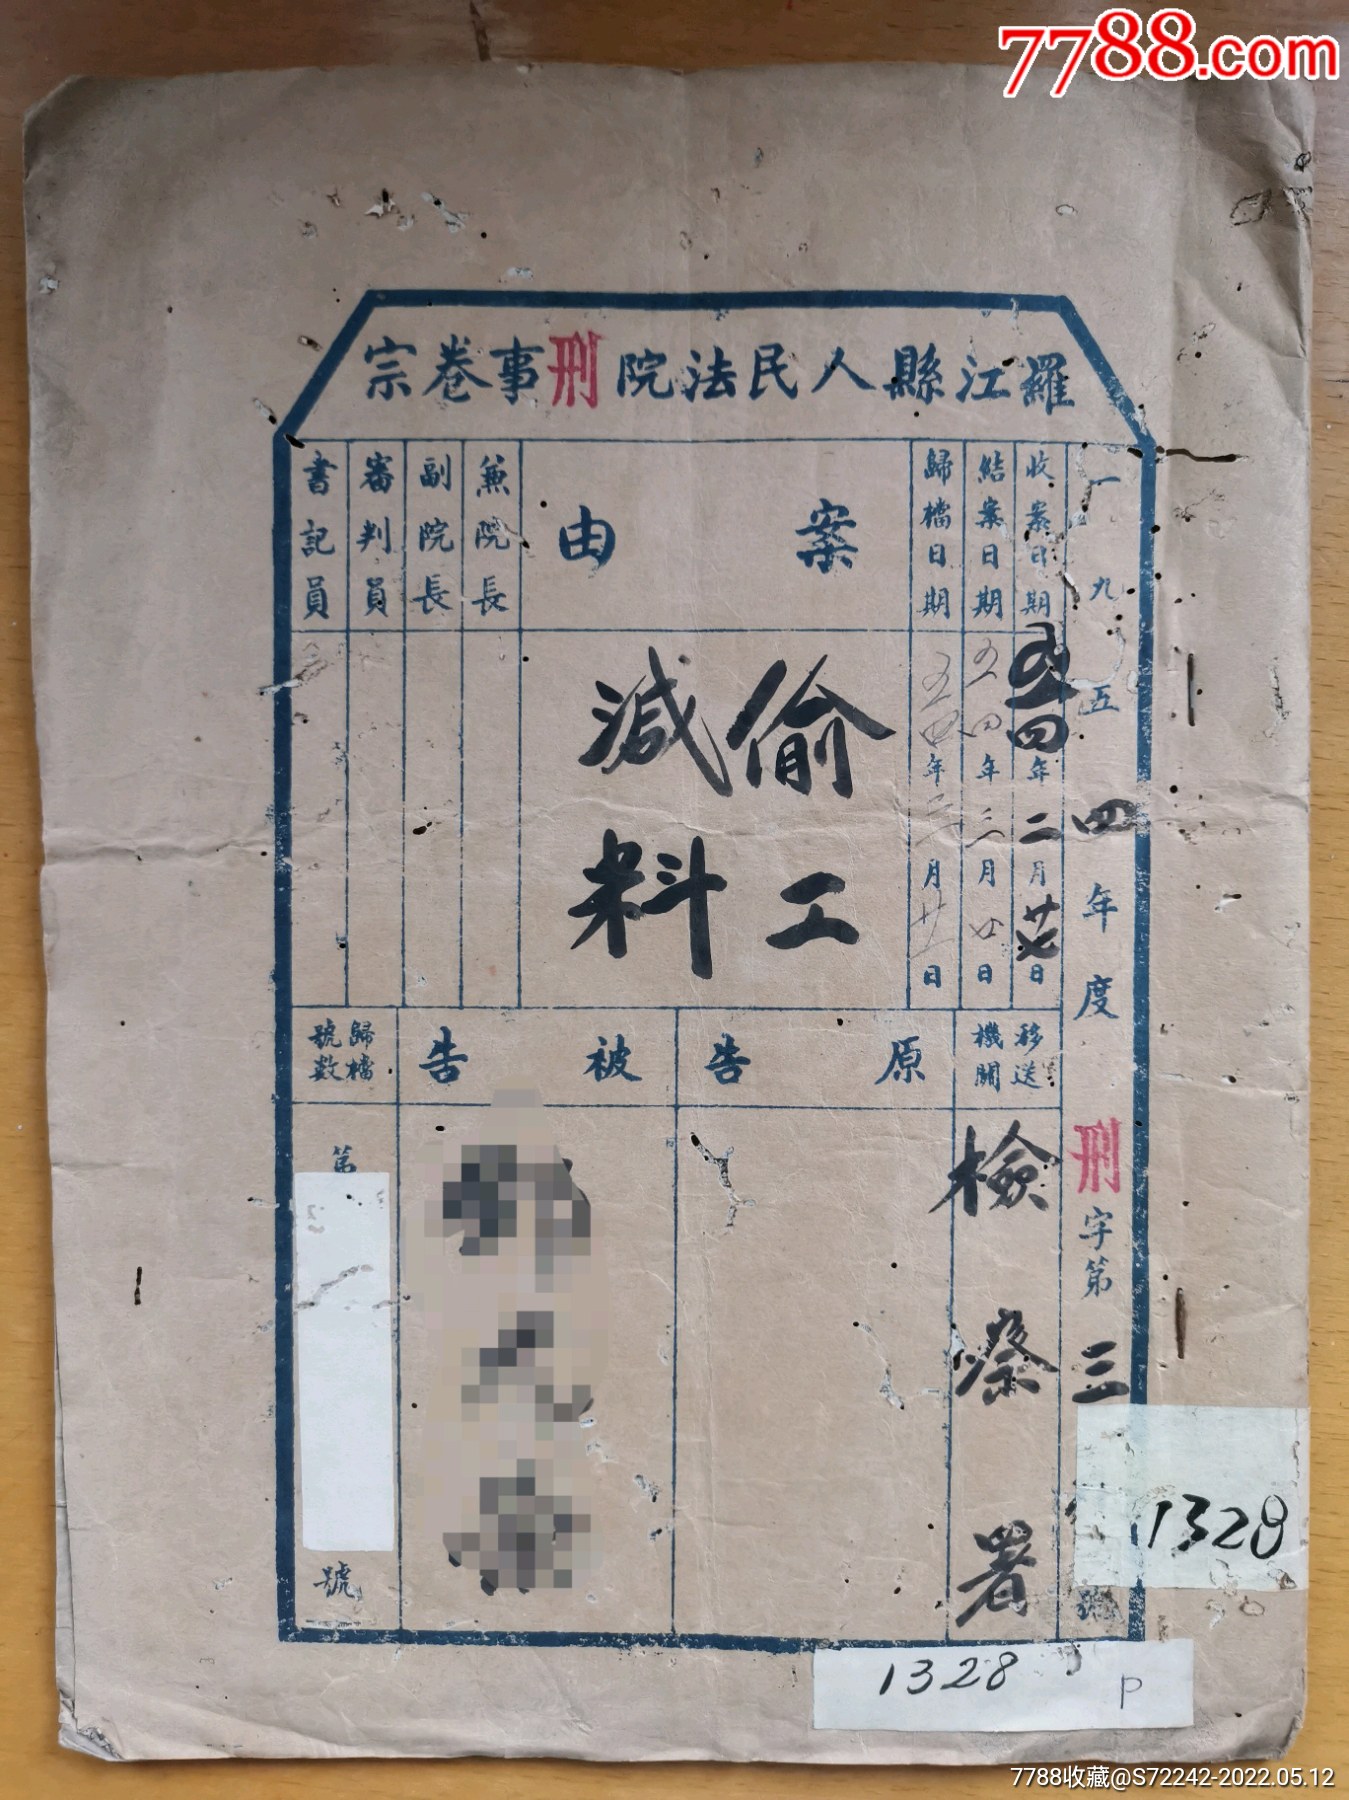 7788.com
羅江縣人民法院刑事卷宗
一九五四年度刑字第三
號
收案日期
五四年二月廿七日
結案日期
五四年三月廿日
歸檔日期
五四年三月廿一日
案由
偷工
減料
兼院長
副院長
審判員
書記員
移送機關
檢察署
原告
被告
歸檔號數
第
號
1328
1328
P
7788收藏@S72242-2022.05.12